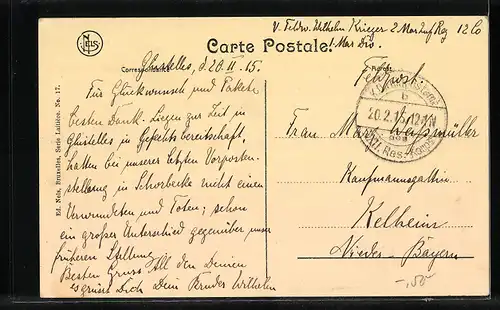 V. Feldw. Wilhelm Krieger 2 Mar Inf Reg 12 Co
1. Mar Div.
NELS
Carte Postale
Correspondance
Adresse
Ghistelles, d. 20. II. 15.
Feldpost.
Für Glückwunsch und Pakete
besten Dank. Liegen zur Zeit in
Ghistelles in Gefechtsbereitschaft,
hatten bei unserer letzten Vorposten-
stellung in Schorbecke nicht einen
Verwundeten und Toten; schon
ein großer Unterschied gegenüber unsr
früheren Stellung.
Besten Gruss All den Deinen
es grüsst Dich Dein Bruder Wilhelm
b
20.2.15. 12-1 N
Res.-Korps
Frau Marie Weißmüller
Kaufmannsgattin
Kelheim
Nieder-Bayern
Ed. Nels, Bruxelles, Série Laitière. No. 17.